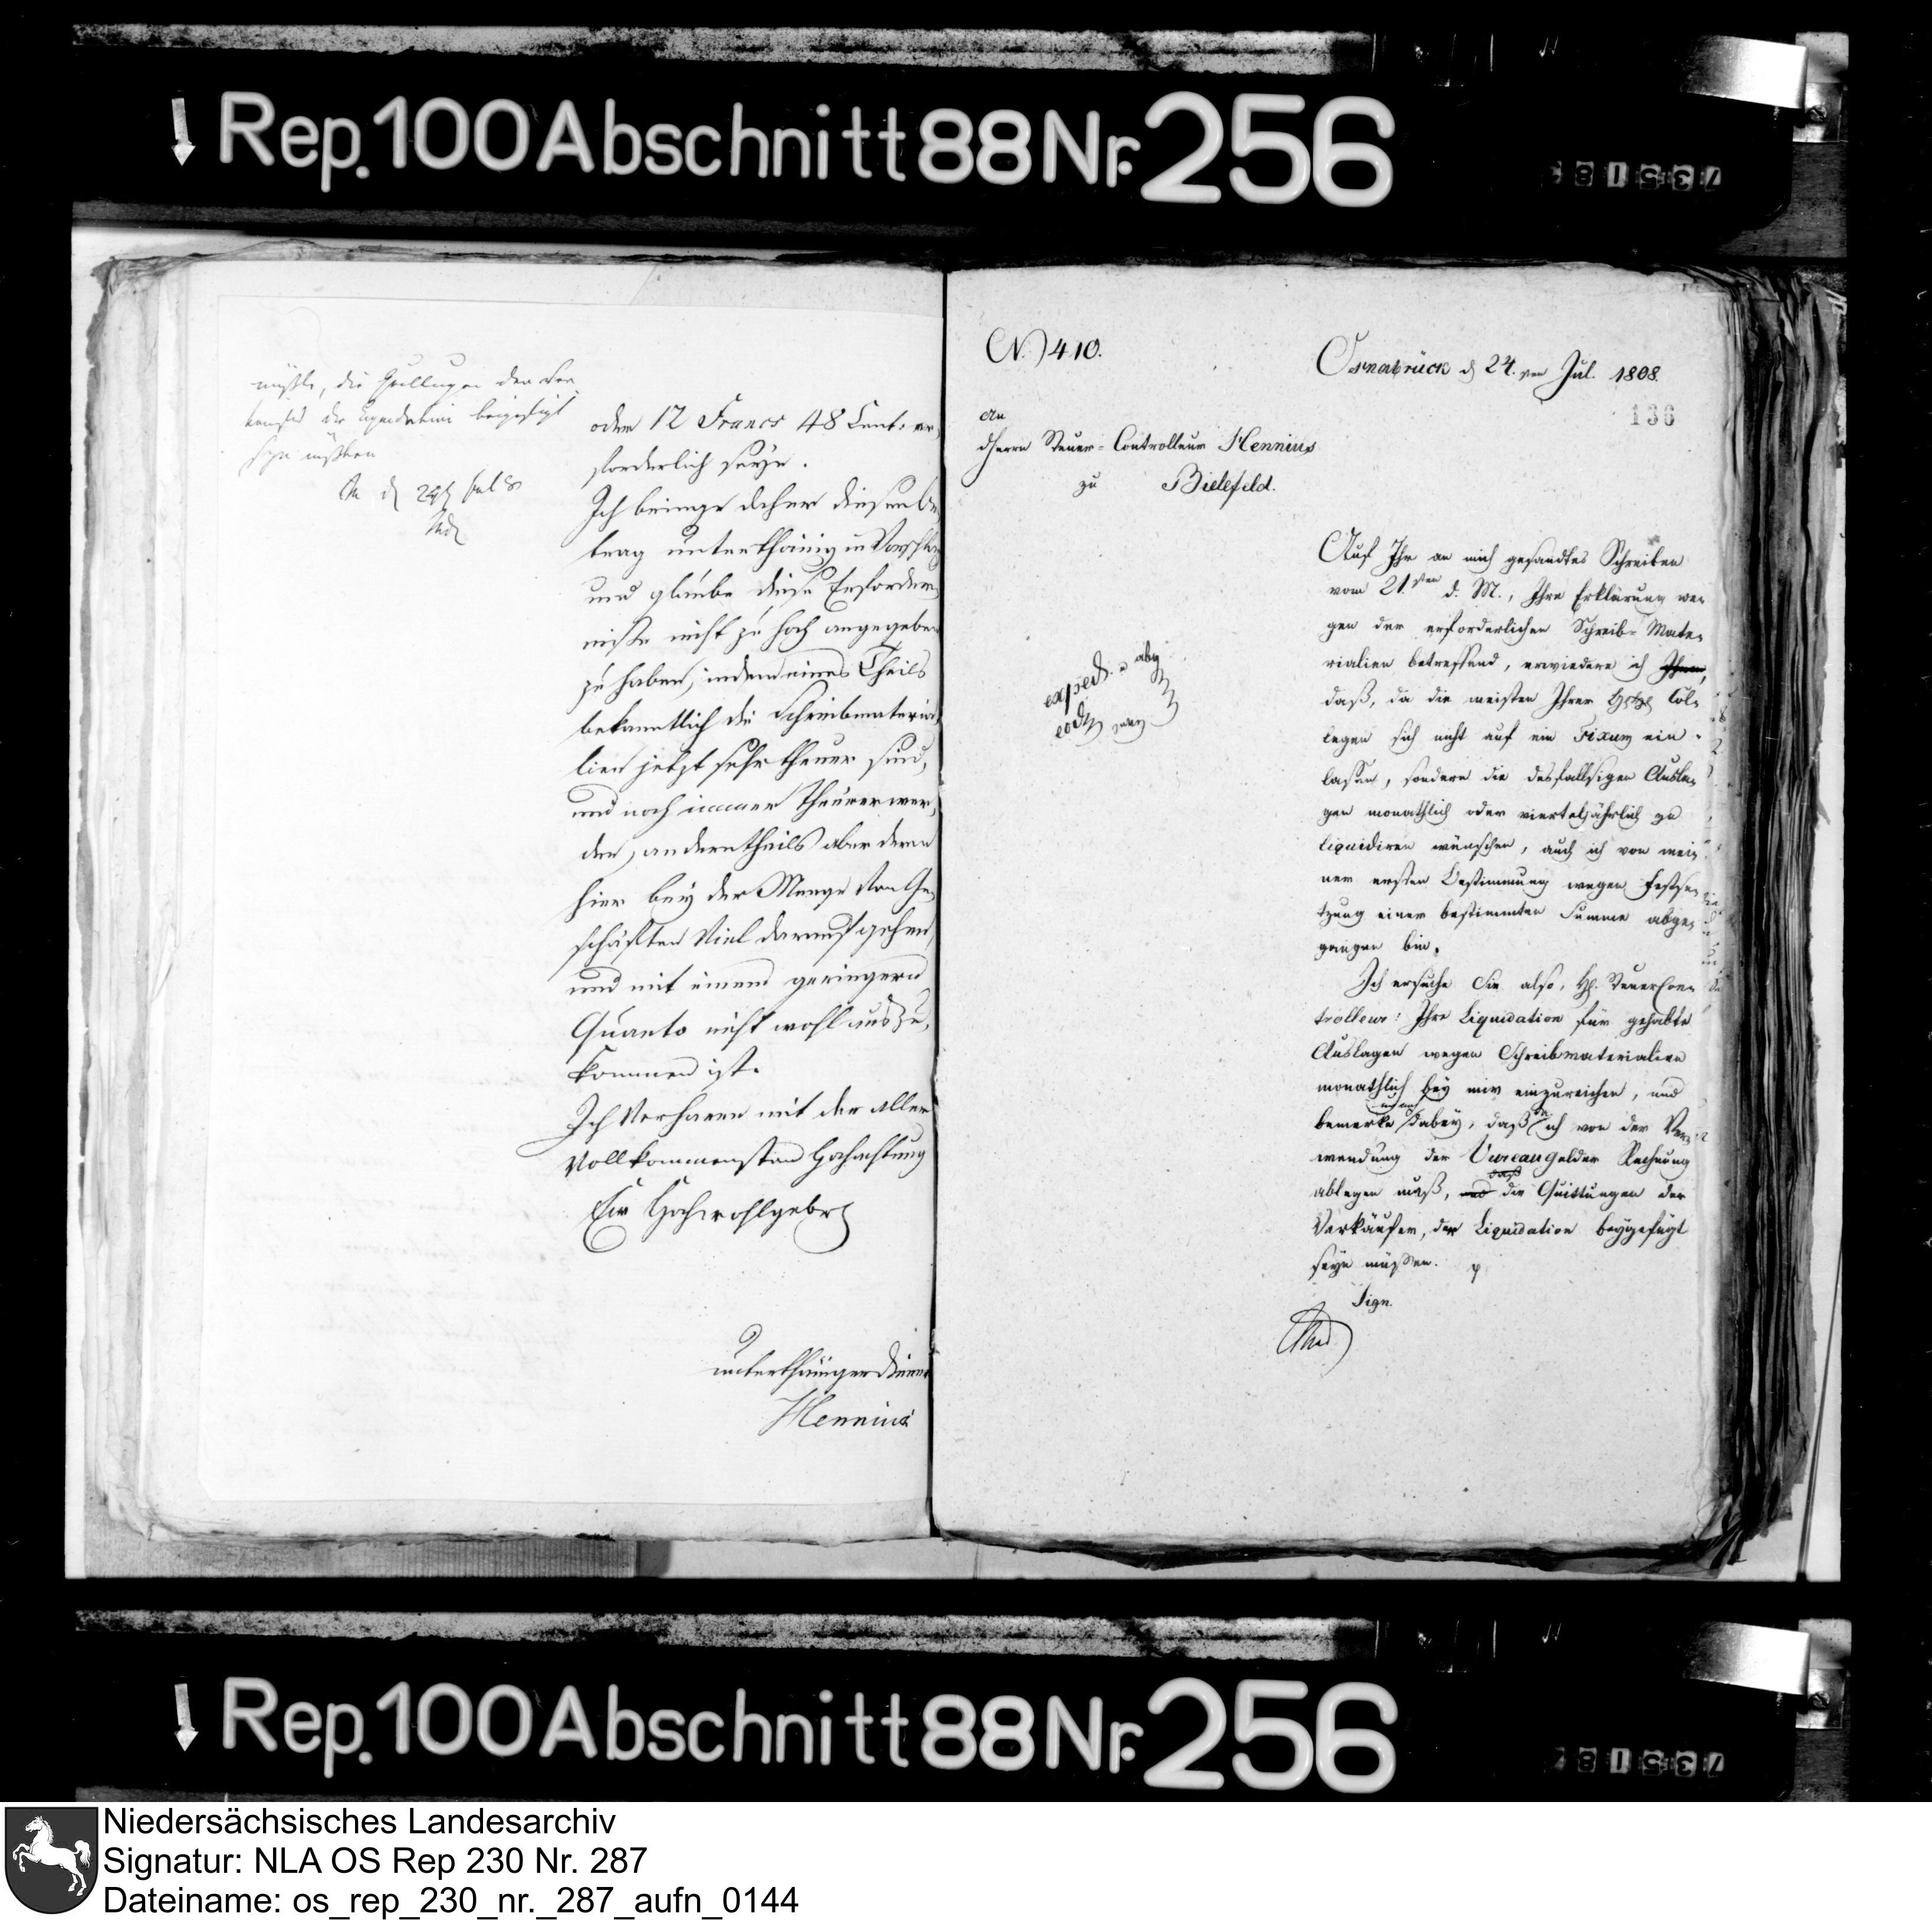 Rep. 100 Abschnitt 88 Nr. 256
müßte, die Quittungen der Ver-
käufer der Liquidation beigefügt
seyn müßten
oder 12 Francs 48 Cent: er-
forderlich seyn.
Ich bringe daher diesen Be-
trag unterthänig in Vorschlag
und glaube diese Erforder-
niße nicht zu hoch angegeben
zu haben, indem eines Theils
bekanntlich die Schreibmateria-
lien jetzt sehr theuer sind,
und noch immer theurer wer-
den, anderntheils aber deren
hier bey der Menge von Ge-
schäften viel darauf gehen,
und mit einem geringern
Quanto nicht wohl auszu-
kommen ist.
Ich verharre mit der aller
vollkommensten Hochachtung
Ew Hochwohlgebr
unterthäniger Diener
Hennius
N. 410.
Osnabrück d 24. ten Jul. 1808.
136
An
d Herrn Steuer-Controlleur Hennius
zu Bielefeld.
exped. u abg
eod
Auf Ihr an mich gesandtes Schreiben
vom 21. sten d. M., Ihre Erklärung we-
gen der erforderlichen Schreib-Mate-
rialien betreffend, erwiedere ich Ihnen,
daß, da die meisten Ihrer Col-
legen sich nicht auf ein Fixum ein-
laßen, sondern die desfallsigen Ausla-
gen monathlich oder vierteljährlich zu
liquidiren wünschen, auch ich von mei-
ner ersten Bestimmung wegen Festse-
tzung einer bestimmten Summe abge-
gangen bin.
Ich ersuche Sie also, H. Steuer Con-
trolleur! Ihre Liquidation für gehabte
Auslagen wegen Schreibmaterialien
monathlich bey mir einzureichen, und
bemerke dabey, daß da ich von der Ver-
wendung der Bureaugelder Rechnung
ablegen muß, und daß die Quittungen der
Verkäufer, der Liquidation beygefügt
seyn müßen.
Sign.
Rep. 100 Abschnitt 88 Nr. 256
Niedersächsisches Landesarchiv
Signatur: NLA OS Rep 230 Nr. 287
Dateiname: os_rep_230_nr._287_aufn_0144